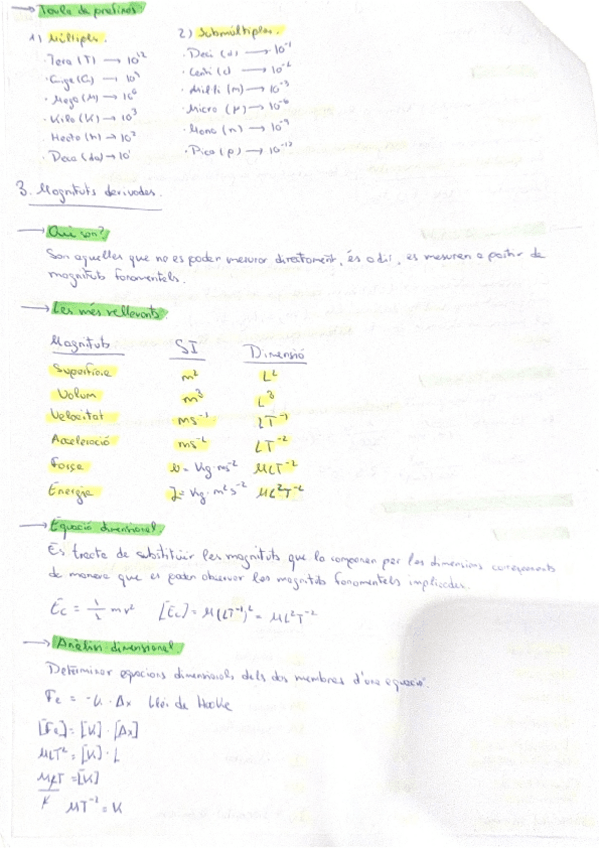 → Taula de prefixos:
1) Múltiples.
· Tera (T) → 10¹²
· Giga (G) → 10⁹
· Mega (M) → 10⁶
· Kilo (K) → 10³
· Hecto (h) → 10²
· Deca (da) → 10¹
2) Submúltiples.
· Deci (d) → 10⁻¹
· Centi (c) → 10⁻²
· Mil·li (m) → 10⁻³
· Micro (μ) → 10⁻⁶
· Nano (n) → 10⁻⁹
· Pico (p) → 10⁻¹²
3. Magnituts derivades.
→ Què son?
Son aquelles que no es poden mesurar directament, és a dir, es mesuren a partir de
magnituts fonamentals.
→ Les més rellevants:
Magnituts SI Dimensió
Superfície m² L²
Volum m³ L³
Velocitat ms⁻¹ LT⁻¹
Acceleració ms⁻² LT⁻²
Força N = Kg·ms⁻² MLT⁻²
Energia J = Kg·m²s⁻² ML²T⁻²
→ Equació dimensional.
Es tracta de substituir les magnituts que la componen per les dimensions corresponents
de manera que es poden observar les magnituts fonamentals implicades.
Ec = 1/2 mv² [Ec] = M(LT⁻¹)² = ML²T⁻²
→ Anàlisi dimensional.
Determinar equacions dimensionals dels dos membres d'una equació.
Fe = -K · Δx Llei de Hooke
[Fe] = [K] · [Δx]
MLT² = [K] · L
MLT = [K]
MT⁻² = K